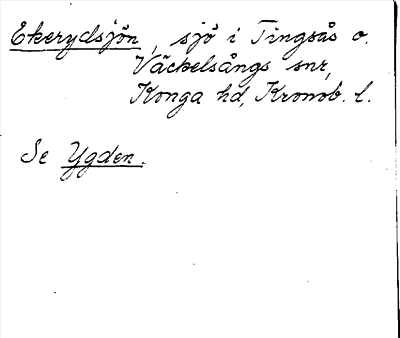 Ekerydsjön, sjö i Tingsås o.
Väckelsångs snr,
Konga hd, Kronob. l.
Se Ygden.